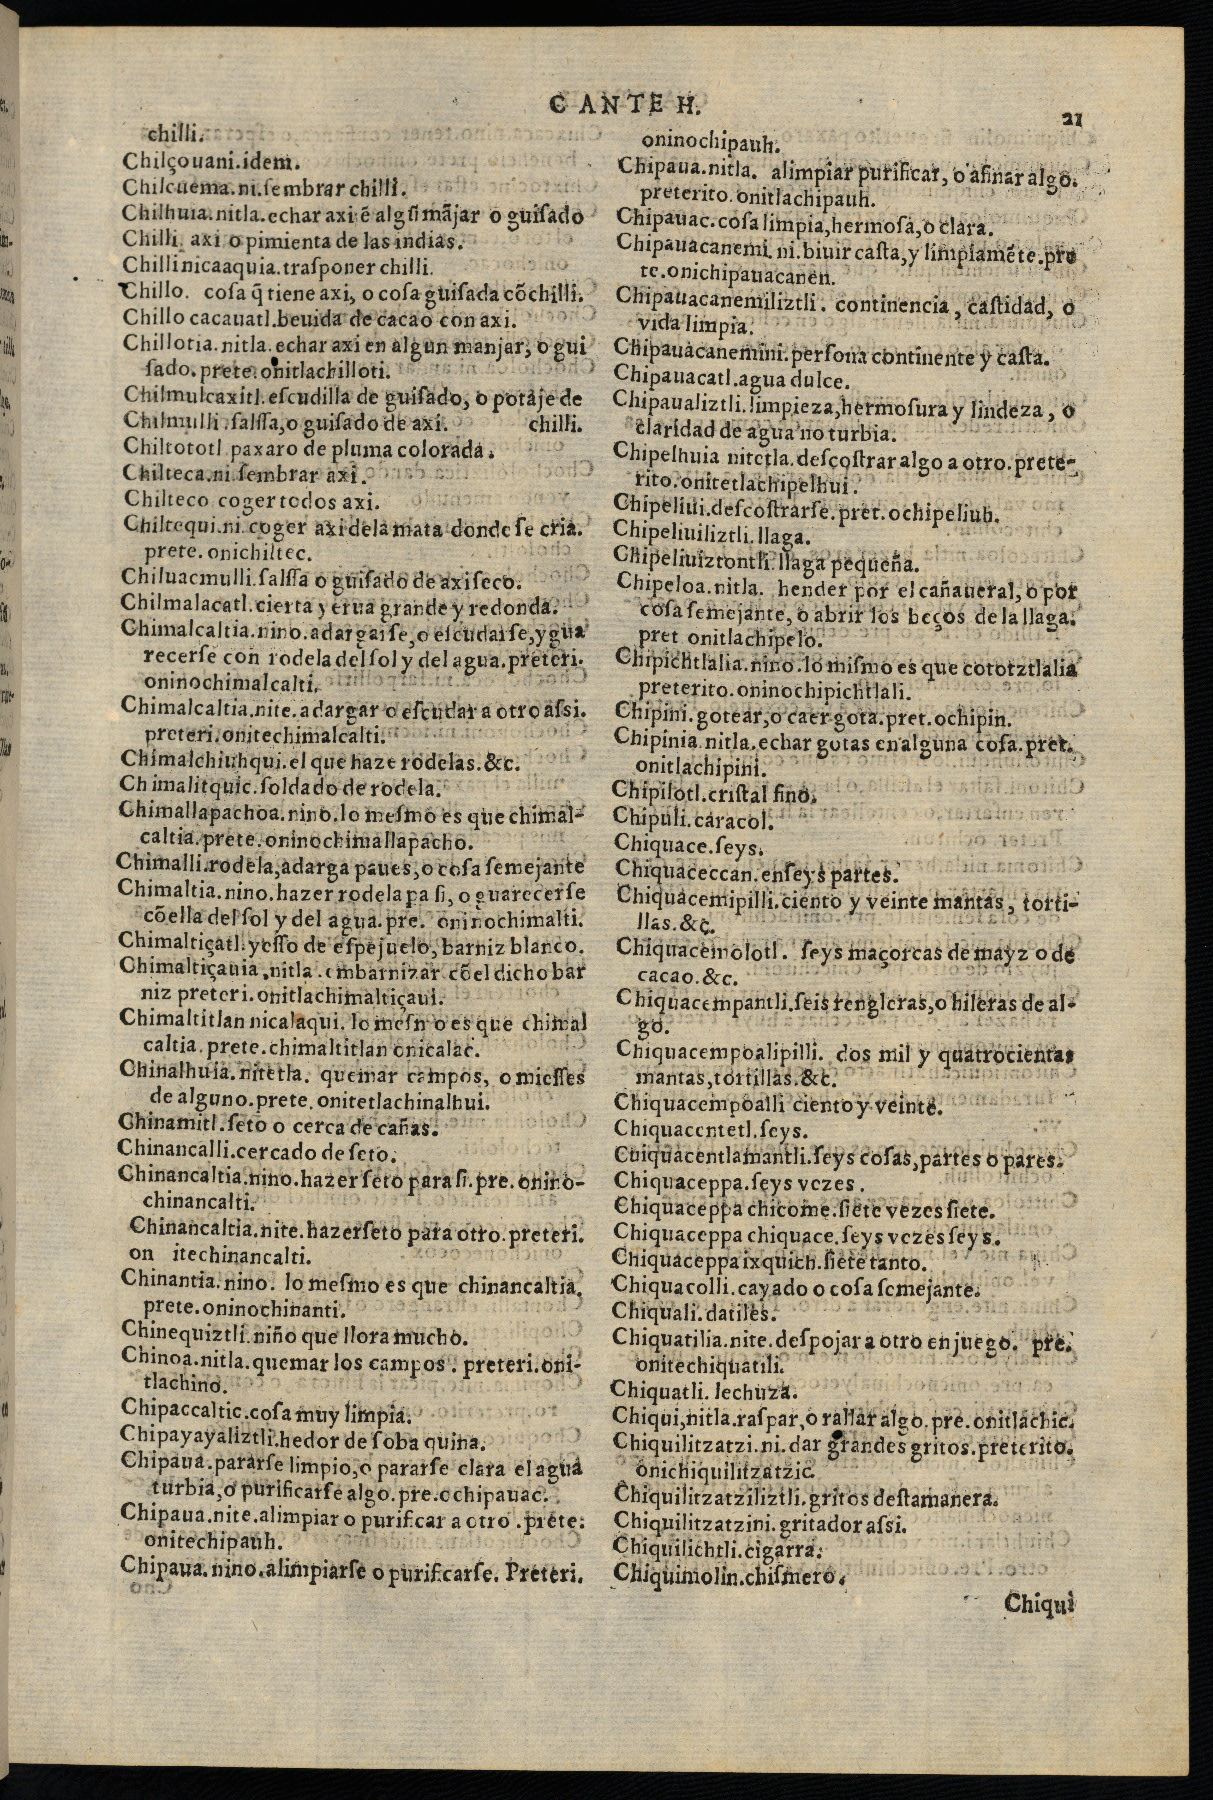 C ANTE H.
21
chilli.
Chilçouani.idem.
Chilcuema.ni.ſembrar chilli.
Chilhuia.nitla.echar axi ẽ algũ mãjar o guiſado
Chilli. axi o pimienta de las indias.
Chilli nicaaquia.traſponer chilli.
Chillo. coſa q̃ tiene axi, o coſa guiſada cõchilli.
Chillo cacauatl.beuida de cacao con axi.
Chillotia.nitla.echar axi en algun manjar, o gui
ſado.prete.onitlachilloti.
Chilmulcaxitl.eſcudilla de guiſado, o potaje de
Chilmulli.ſalſſa,o guiſado de axi. chilli.
Chiltototl paxaro de pluma colorada.
Chilteca.ni.ſembrar axi.
Chilteco coger todos axi.
Chiltequi.ni.coger axi dela mata donde ſe cria.
prete.onichiltec.
Chiluacmulli.ſalſſa o guiſado de axi ſeco.
Chilmalacatl.cierta yerua grande y redonda.
Chimalcaltia.nino.adargarſe,o eſcudarſe,y gua
recerſe con rodela del ſol y del agua.preteri.
oninochimalcalti.
Chimalcaltia.nite.adargar o eſcudar a otro aſsi.
preteri.onitechimalcalti.
Chimalchiuhqui.el que haze rodelas.&c.
Chimalitquic.ſoldado de rodela.
Chimallapachoa.nino.lo meſmo es que chimal-
caltia.prete.oninochimallapacho.
Chimalli.rodela,adarga paues,o coſa ſemejante
Chimaltia.nino.hazer rodela pa ſi, o guarecerſe
cõella del ſol y del agua.pre. oninochimalti.
Chimaltiçatl.yeſſo de eſpejuelo, barniz blanco.
Chimaltiçauia.nitla.embarnizar cõel dicho bar
niz preteri.onitlachimaltiçaui.
Chimaltitlan nicalaqui. lo meſmo es que chimal
caltia.prete.chimaltitlan onicalac.
Chinalhuia.nitetla. quemar campos, o mieſſes
de alguno.prete.onitetlachinalhui.
Chinamitl.ſeto o cerca de cañas.
Chinancalli.cercado de ſeto.
Chinancaltia.nino.hazer ſeto para ſi.pre.onino-
chinancalti.
Chinancaltia.nite.hazer ſeto para otro.preteri.
on itechinancalti.
Chinantia.nino. lo meſmo es que chinancaltia.
prete.oninochinanti.
Chinequiztli.niño que llora mucho.
Chinoa.nitla.quemar los campos. preteri.oni-
tlachino.
Chipaccaltic.coſa muy limpia.
Chipayayaliztli.hedor de ſobaquina.
Chipaua.pararſe limpio,o pararſe clara el agua
turbia,o purificarſe algo.pre.ochipauac.
Chipaua.nite.alimpiar o purificar a otro.prete.
onitechipauh.
Chipaua.nino.alimpiarſe o purificarſe. Preteri.
oninochipauh.
Chipaua.nitla. alimpiar purificar, o afinar algo.
preterito.onitlachipauh.
Chipauac.coſa limpia,hermoſa,o clara.
Chipauacanemi.ni.biuir caſta,y limpiamẽte.pre
te.onichipauacanen.
Chipauacanemiliztli. continencia, caſtidad, o
vida limpia.
Chipauacanemini.perſona continente y caſta.
Chipauacatl.agua dulce.
Chipaualiztli.limpieza,hermoſura y lindeza, o
claridad de agua no turbia.
Chipelhuia nitetla.deſcoſtrar algo a otro.prete-
rito.onitetlachipelhui.
Chipeliui.deſcoſtrarſe.pret.ochipeliuh.
Chipeliuiliztli.llaga.
Chipeliuiztontli.llaga pequeña.
Chipeloa.nitla. hender por el cañaueral, o por
coſa ſemejante, o abrir los beços de la llaga.
pret onitlachipelo.
Chipichtlalia.nino.lo miſmo es que cototztlalia
preterito.oninochipichtlali.
Chipini.gotear,o caer gota.pret.ochipin.
Chipinia.nitla.echar gotas en alguna coſa.pret.
onitlachipini.
Chipilotl.criſtal fino.
Chipuli.caracol.
Chiquace.ſeys.
Chiquaceccan.enſeys partes.
Chiquacemipilli.ciento y veinte mantas, torti-
llas.&c.
Chiquacemolotl. ſeys maçorcas de mayz o de
cacao.&c.
Chiquacempantli.ſeis rengleras,o hileras de al-
go.
Chiquacempoalipilli. dos mil y quatrocientas
mantas,tortillas.&c.
Chiquacempoalli ciento y veinte.
Chiquacentetl.ſeys.
Cuiquacentlamantli.ſeys coſas,partes o pares.
Chiquaceppa.ſeys vezes.
Chiquaceppa chicome.ſiete vezes ſiete.
Chiquaceppa chiquace.ſeys vezes ſeys.
Chiquaceppa ixquich.ſiete tanto.
Chiquacolli.cayado o coſa ſemejante.
Chiquali.datiles.
Chiquatilia.nite.deſpojar a otro en juego. pre.
onitechiquatili.
Chiquatli.lechuza.
Chiqui,nitla.raſpar,o rallar algo.pre.onitlachic.
Chiquilitzatzi.ni.dar grandes gritos.preterito.
onichiquilitzatzic.
Chiquilitzatziliztli.gritos deſta manera.
Chiquilitzatzini.gritador aſsi.
Chiquilichtli.cigarra.
Chiquimolin.chiſmero.
Chiqui